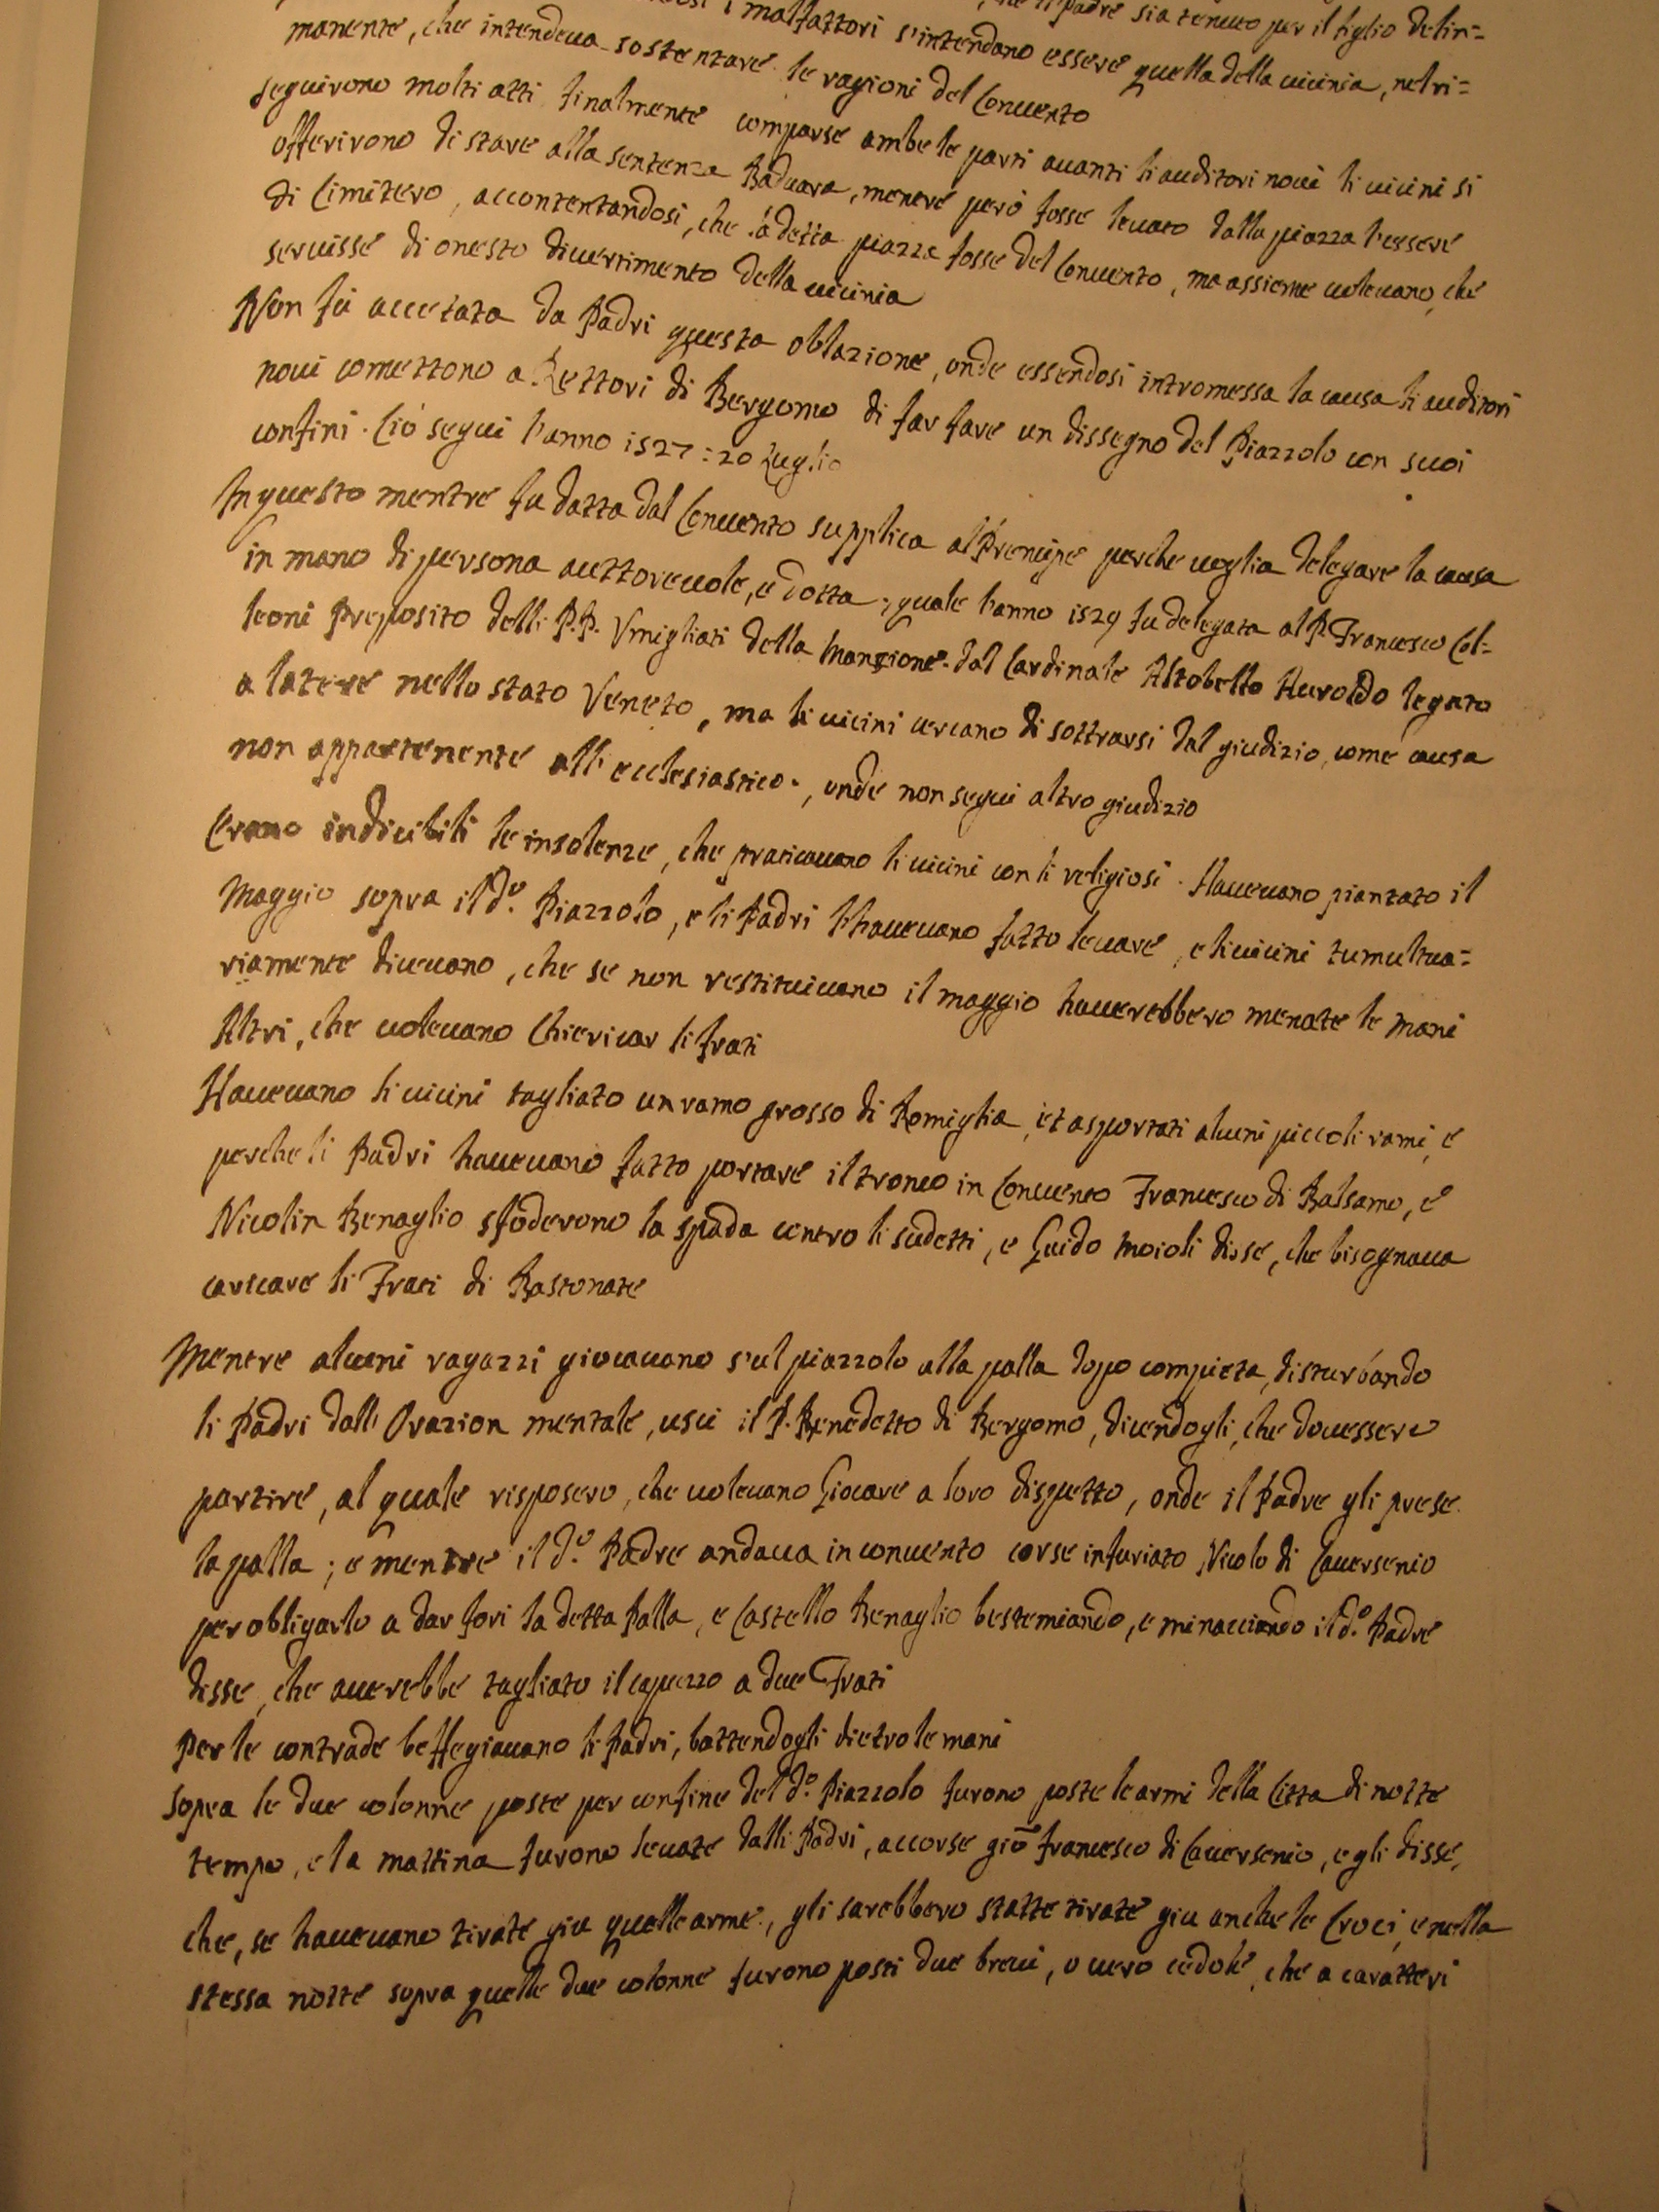 i malfattori s'intendano essere quella della uicinia, nel ri=
il Padre sia tenuto per il figlio delin=
manente, che intendeua sostentare le ragioni del Conuento
seguirono molti atti finalmente comparse ambe le parti auanti li auditori noui li uicini si
offerirono di stare alla sentenza Baduara, mentre però fosse leuato dalla piazza l'essere
di Cimitero, accontentandosi, che la detta piazza fosse del Conuento, ma assieme uoleuano, che
seruisse di onesto diuertimento della uicinia
Non fù accetata da Padri questa oblazione, onde essendosi intromessa la causa li auditori
noui comettono a Rettori di Bergomo di far fare un dissegno del Piazzolo con suoi
confini. Ciò segui l'anno 1527: 20 Luglio
In questo mentre fu datta dal Conuento supplica al Prencipe perche uoglia delegare la causa
in mano di persona auttoreuole, e dotta, quale l'anno 1529 fu delegata al P. Francesco Col=
leoni Preposito delli P.P. Vmigliati della Manzione dal Cardinale Altobello Aueroldo legato
a latere nello stato Veneto, ma li uicini cercano di sottrarsi dal giudizio, come causa
non appartenente alli ecclesiastico, onde non segui altro giudizio
Erano indicibili le insolenze, che praticauano li uicini con li religiosi. Haueuano piantato il
Maggio sopra il d.º Piazzolo, e li Padri l'haueuano fatto leuare, e li uicini tumultua=
riamente diceuano, che se non restituiuano il maggio hauerebbero menate le mani
Altri, che uoleuano Chiericar li frati
Haueuano li uicini tagliato un ramo grosso di Romiglia, et asportati alcuni piccoli rami, e
perche li Padri haueuano fatto portare il tronco in Conuento Francesco di Balsamo, e
Nicolin Benaglio sfoderono la spada contro li sudetti, e Guido Moioli disse, che bisognaua
caricare li Frati di Bastonate
Mentre alcuni ragazzi giocauano sul piazzolo alla palla dopo compieta, disturbando
li Padri dall Orazion mentale, usci il P. Benedetto di Bergomo, dicendogli, che douessero
partire, al quale risposero, che uoleuano Giocare a loro dispetto, onde il Padre gli prese
la palla; e mentre il d.º Padre andaua in conuento corse infuriato Nicolo di Cauersenio
per obligarlo a dar fori la detta Palla, e Castello Benaglio bestemiando, e minacciando il d.º Padre
disse, che auerebbe tagliato il capuzzo a due Frati
Per le contrade beffegiauano li Padri, battendogli dietro le mani
Sopra le due colonne poste per confine del d.º Piazzolo furono poste le armi della Citta di notte
tempo, e la mattina furono leuate dalli Padri, accorse gio Francesco di Cauersenio, e gli disse,
che, se haueuano tirate giu quelle arme, gli sarebbero statte tirate giu anche le Croci, e nella
stessa notte sopra quelle due colonne furono posti due breui, o uero cedole, che a caratteri